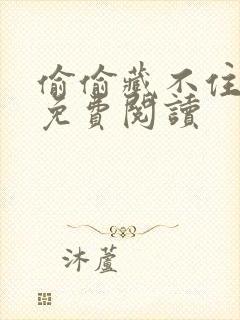 偷偷藏不住
免費閱讀
沐蘆